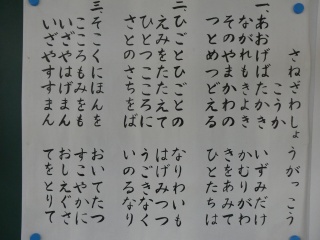 さねざわしょうがっこう
こうか
一、あおげばたかき いずみだけ
ながれもきよき かむりがわ
そのやまかわの きをあみて
つとめつどえる ひとたちは
二、ひごとひごとの なりわいも
えみをたたえて はげみつつ
ひとつこころに うごきなく
さとのさちをば いのるなり
三、そこくにほんを おいてたつ
こころもみをも すこやかに
いざやはげまん おしえぐさ
いざやすすまん てをとりて